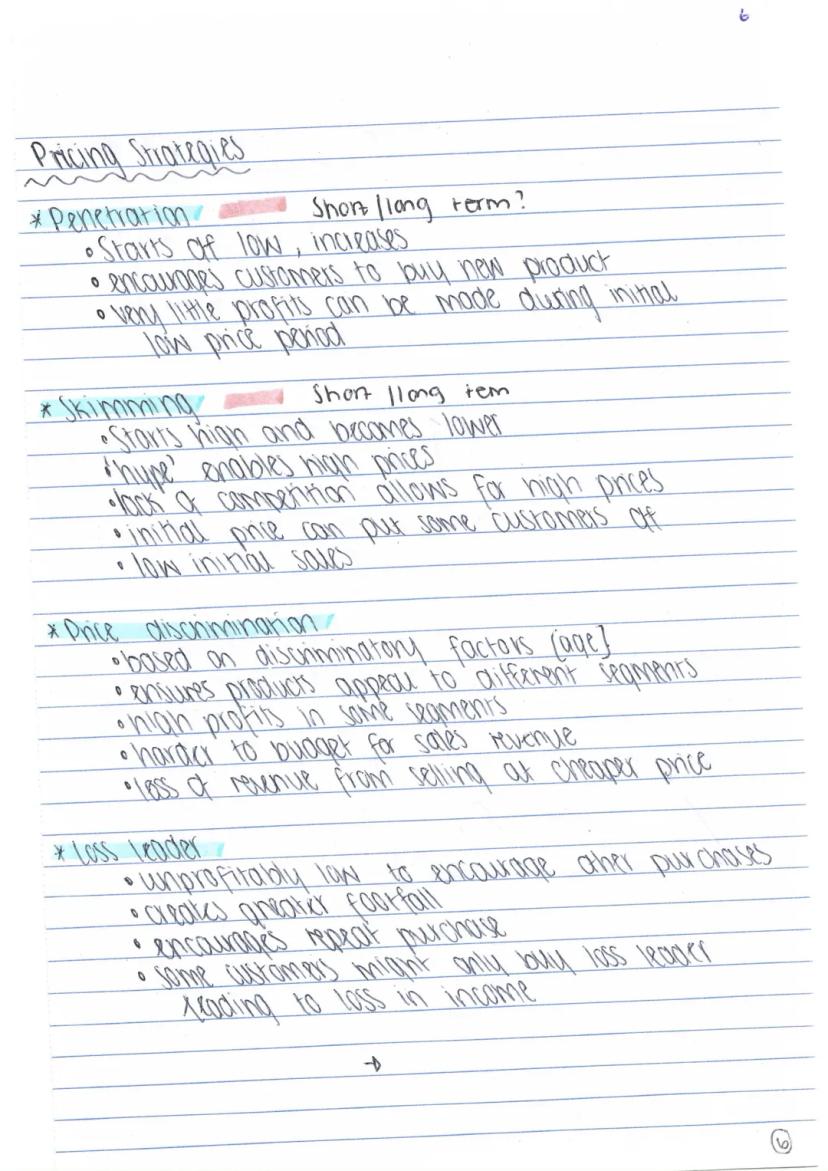 6
Pricing Strategies
* Penetration Short/long term?
• Starts off low, increases
• encourages customers to buy new product
• very little profits can be made during initial
low price period
* Skimming Short/long tem
• Starts high and becomes lower
• 'hype' enables high prices
• lack of competition allows for high prices
• initial price can put some customers off
• low initial sales
* Price discrimination
• based on discriminatory factors (age]
• ensures products appeal to different segments
• high profits in some segments
• harder to budget for sales revenue
• loss of revenue from selling at cheaper price
* Loss leader
• unprofitably low to encourage other purchases
• creates greater footfall
• encourages repeat purchase
• some customers might only buy loss leader
leading to loss in income
→
6